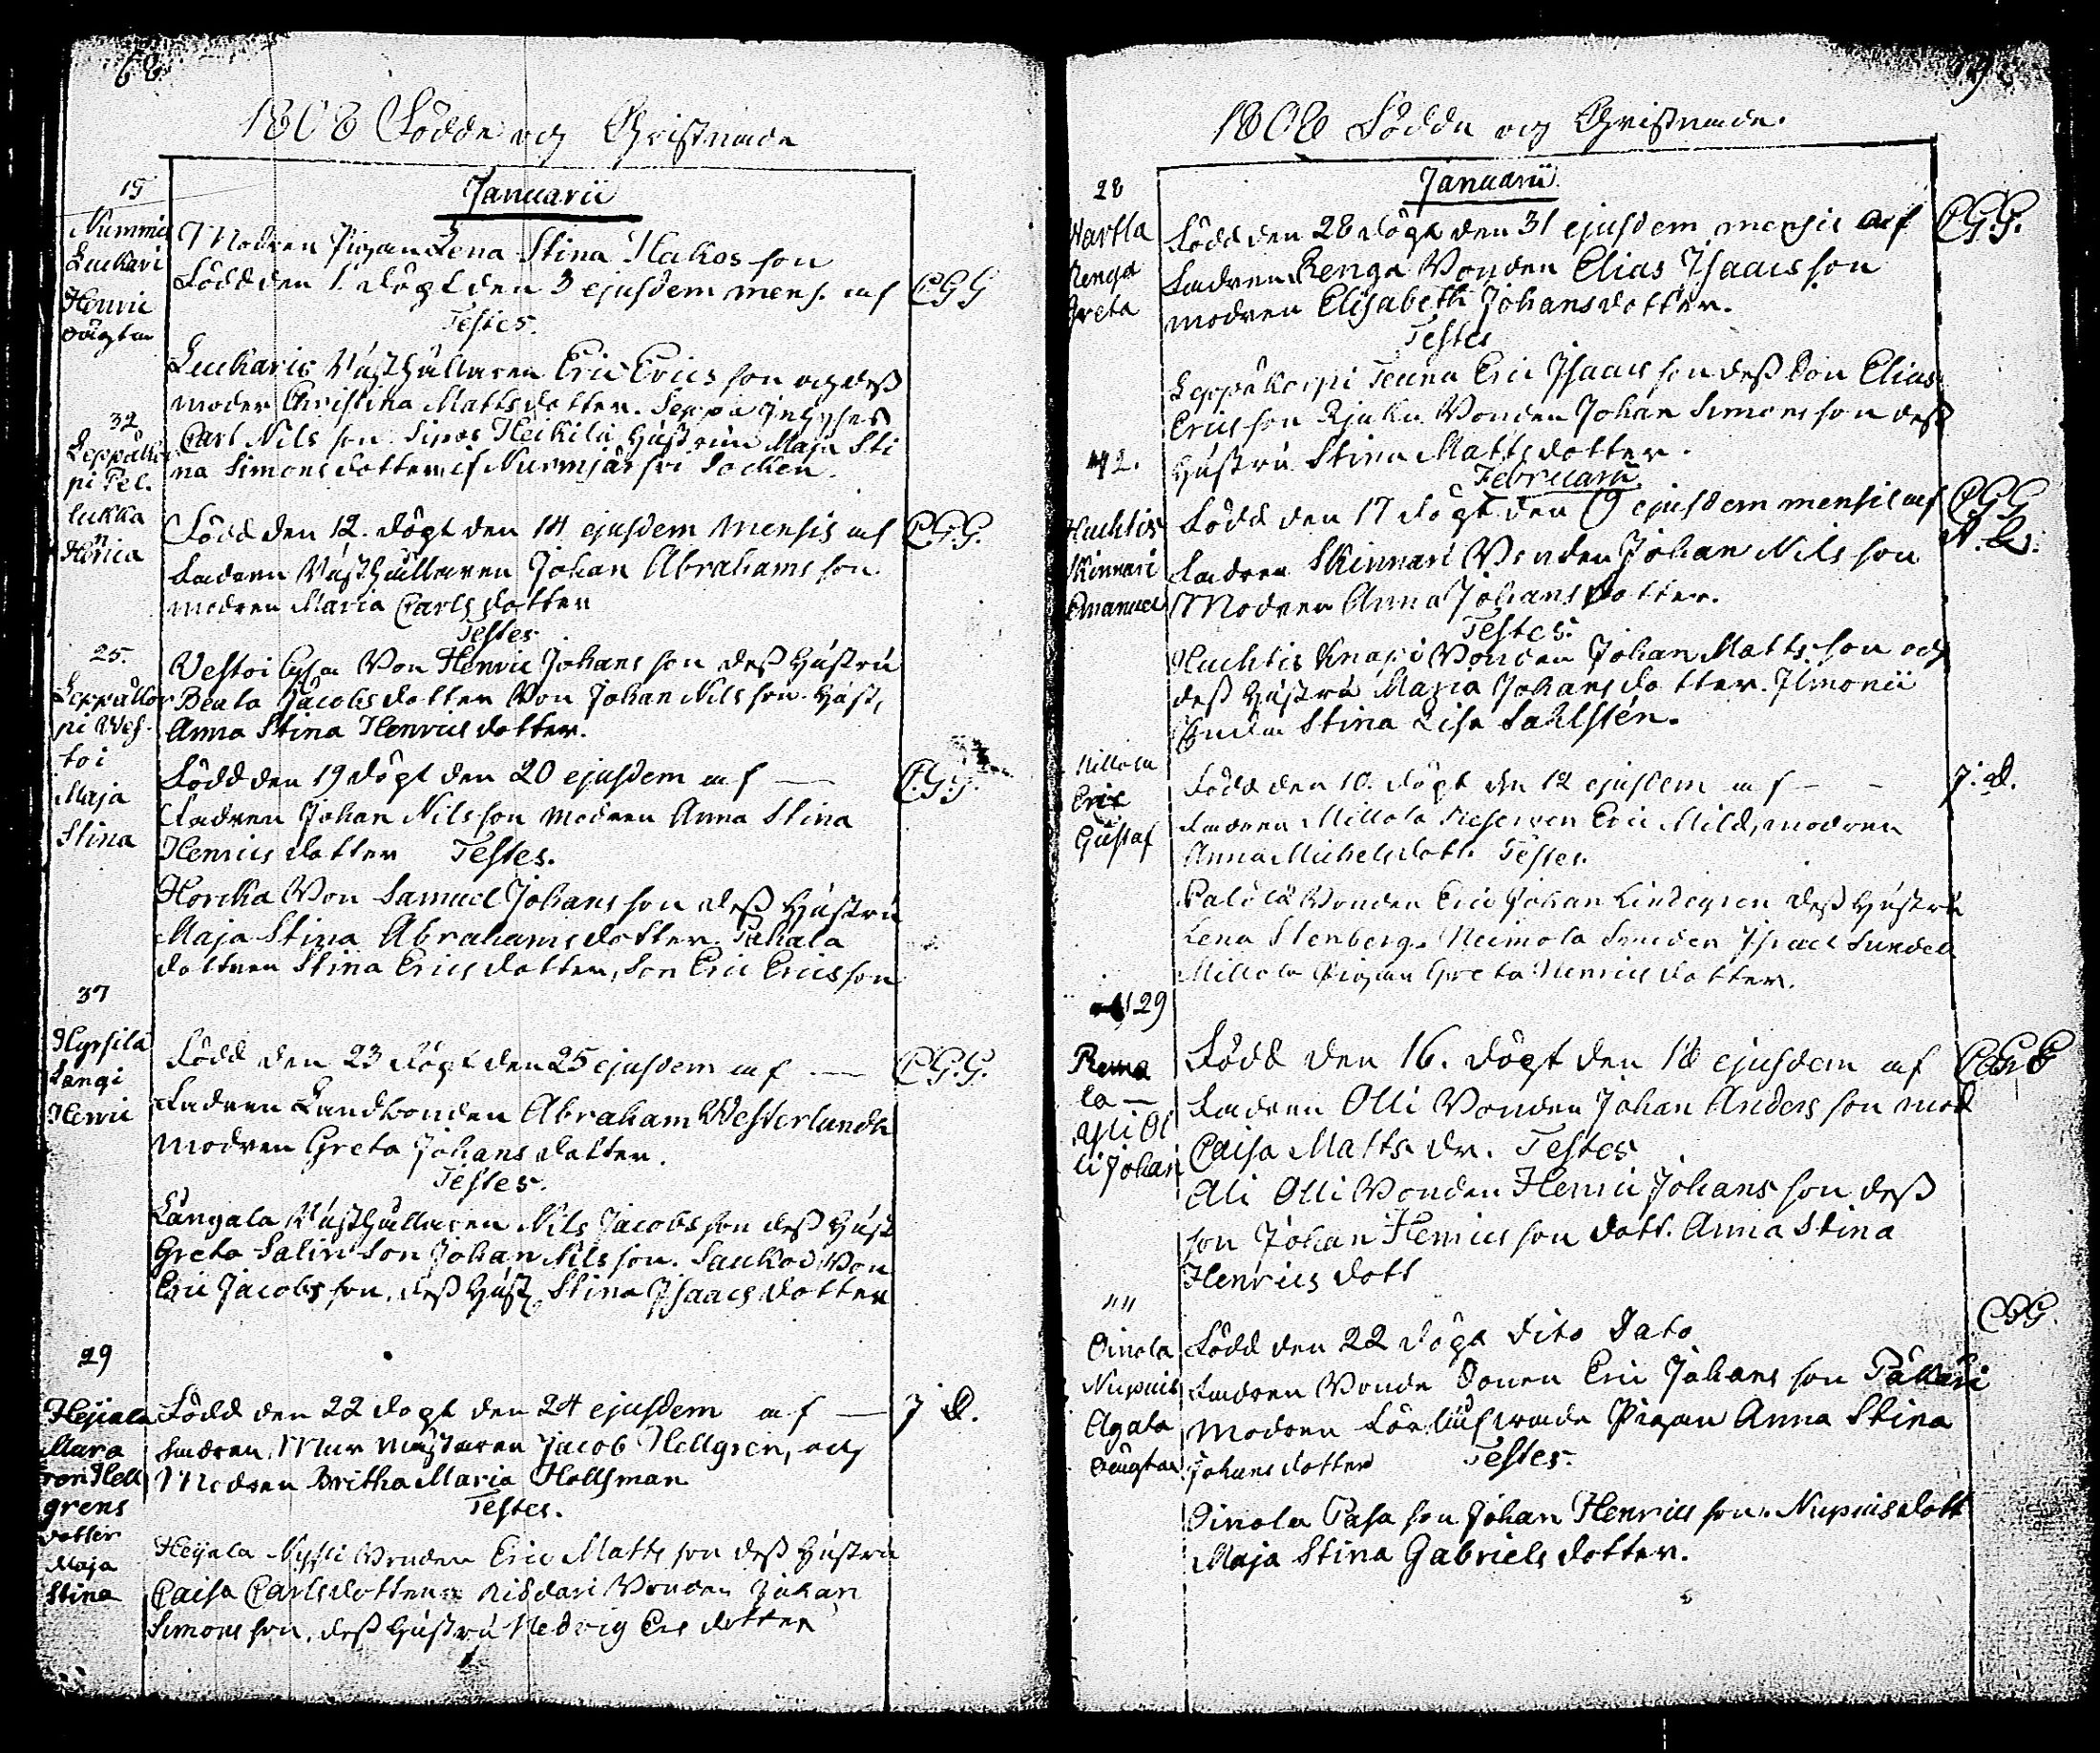 68
1808 Födde och Christnade
Januarii
15
Nummis
Luckari
Henric
oägta
Modren Pigan Lena Stina Hakos son
Född den 1 döpt den 3 ejusdem mens. af CGG
Testes.
Luckaris Inhysehållaren Eric Erics son och deß
moder Christina Matts dotter. Seppä Inhyses
Carl Nils son. Sipos Heikilä Hustrun Maja Sti
na Simons dotter if Nurmjärfvi Socken.
32
Leppäkor
pi Pel.
lukka
Henrica
Född den 12. döpt den 14 ejusdem mensis af CGG.
Fadren Johan Abrahams son.
modren Maria Carls dotter
Testes
25.
Leppäkor
pi Wes.
toi
Maja
Stina
Vestoi Bon Henric Johans son deß Hustru
Beata Jacobs dotter Bon Johan Nils son Hust,
Anna Stina Henrics dotter.
Född den 19 döpt den 20 ejusdem af — CGG.
Fadren Johan Nils son modren Anna Stina
Henrics dotter Testes.
Horcka Bon Samuel Johans son deß Hustru
Maja Stina Abrahams dotter. Pakala
dottren Stina Erics dotter, Son Eric Ericsson
37
Hyrsilä
Längi
Henric
Född den 23 döpt den 25 ejusdem af — CGG.
Fadren Landbonden Abraham Westerlundh
modren Greta Johans dotter.
Testes.
Längala Nils Jacobs son deß Hust
Greta Salin Son Johan Nils son. Saukos Bon
Eric Jacobs son, deß Hust. Stina Isaacs dotter
29
Hejiala
Mura
ren Hell
grens
dotter
Maja
Stina
Född den 22 döpt den 24 ejusdem af — J D.
Fadren, Mur mästaren Jacob Hellgren, och
Modren Britha Maria Hollsman
Testes.
Heijala Nyssi Bonden Eric Matts son deß Hustru
Caisa Carlsdotter Bonden Johan
Simons son, deß Hustru Hedvig Ers dotter
1808 Födde och Christnade.
Januarii
28
Wartla
Renga
Greta
Född den 28 döpt den 31 ejusdem mensis af CGG.
Fadren Renga Bonden Elias Isaacs son
modren Elisabeth Johansdotter.
Testes
Leppäkorpi Eric Isaacs son deß Son Elias
Ericsson Bonden Johan Simons son deß
Hustru Stina Matts dotter.
42.
Februarii
Huchtis
Skinnari
Emanuel
Född den 17 döpt den 19 ejusdem mensis af CGG
Fadren Skinnari Bonden Johan Nils son
Modren Anna Johans dotter.
Testes.
Huchtis Knapi Bonden Johan Matts son och
deß Hustru Maria Johans dotter. Ilmonii
Enka Stina Lisa Sahlstén.
Millola
Eric
Gustaf
Född den 10. döpt den 12 ejusdem af — J. D.
Fadren Millola Reserven Eric Mild, modren
Anna Michels dott. Testes.
Palola Bonden Eric Johan Lindegren deß Hustru
Lena Stenberg. Neimola Smeden Isaac Sundel
Millola Pigan Greta Henrics dotter.
129
Remo
la —
Yli Ol
li Johan
Född den 16. döpt den 18 ejusdem af
Fadren Olli Bonden Johan Anders son mod
Caisa Matts dr. Testes
Ali Olli Bonden Henric Johans son deß
son Johan Henrics son dott. Anna Stina
Henrics dott
44
Oinola
Nupuis
Agata
oäugta
Född den 22 döpt dito dato CGG.
Fadren Bonde Sonen Eric Johans son Pällari
Modren Pigan Anna Stina
Johans dotter Testes.
Oinola Pasa son Johan Henrics son. Nupuis dott
Maja Stina Gabriels dotter.